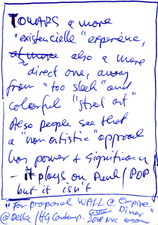 TOWARDS a more
"existencielle" experience,
also a more
direct one, away
from "too sleek" and
colorful "street art"
Also people see that
a "non artistic" approach
has power & signification
- it plays on Punk/POP
but it isn't
"For proposal WALL @ Empire
Diner"
@ Della / HG Contemp.